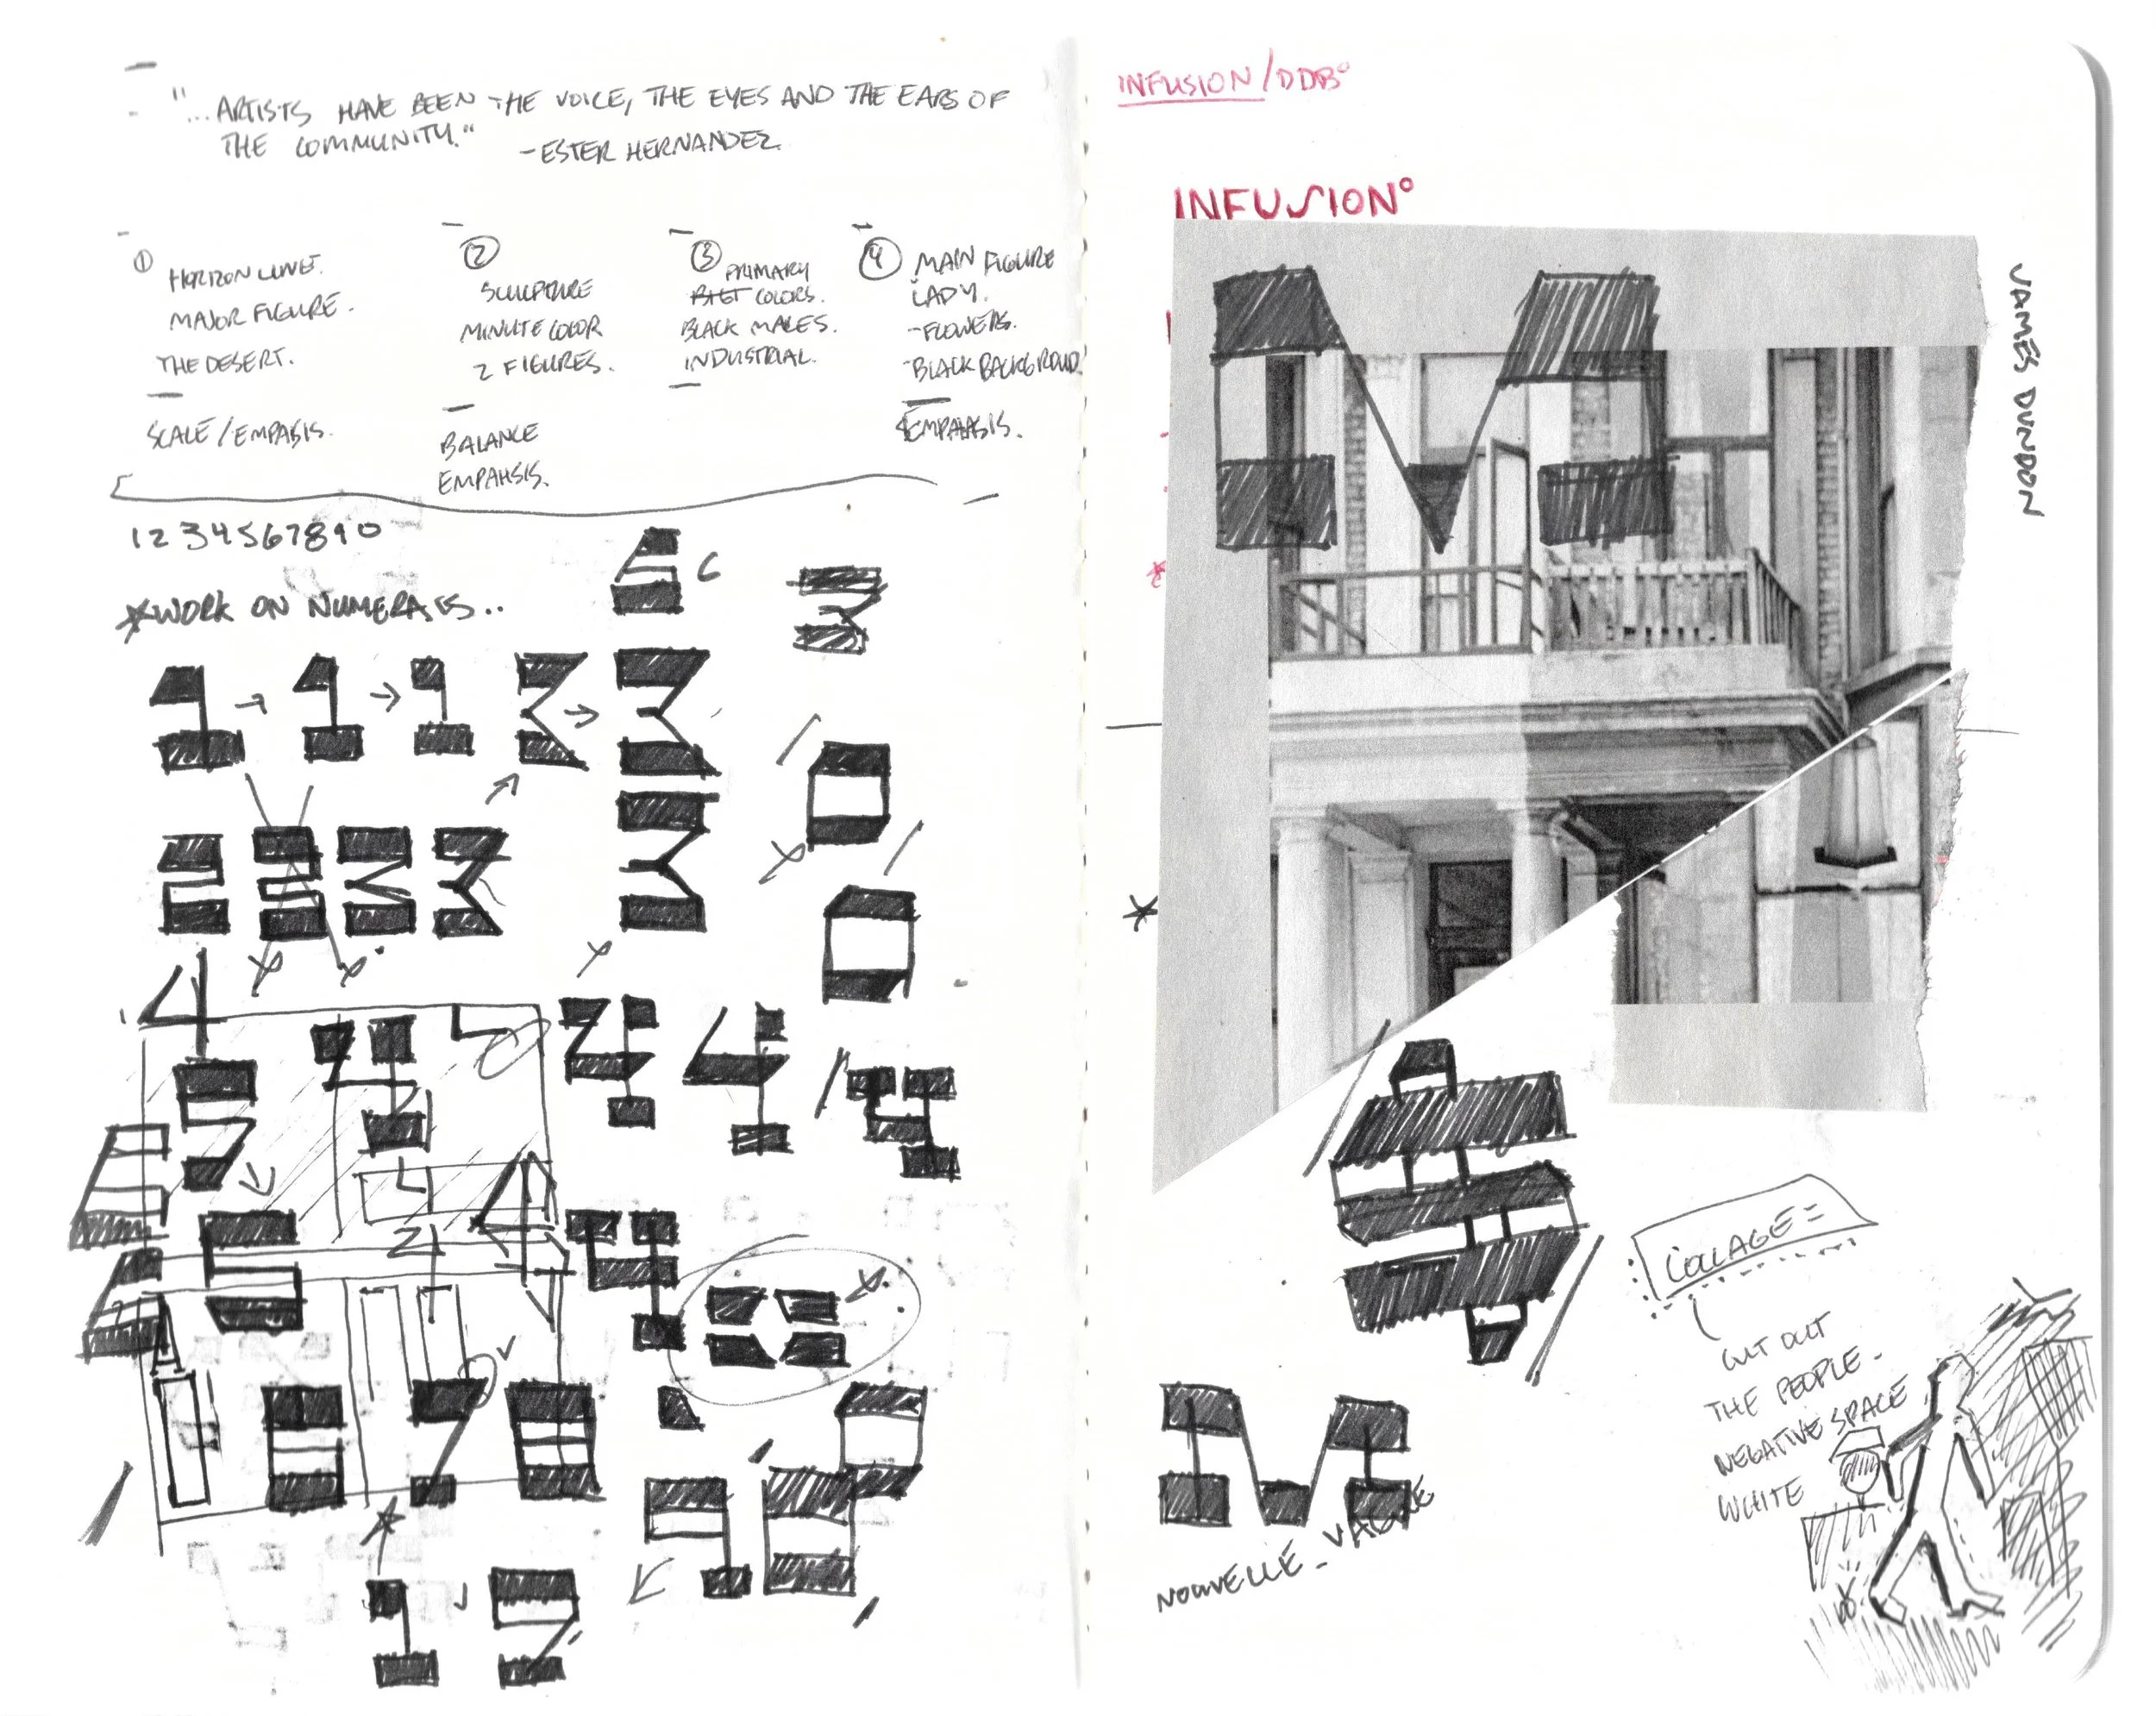 "...ARTISTS HAVE BEEN THE VOICE, THE EYES AND THE EARS OF
THE COMMUNITY."
-ESTER HERNANDEZ
①
HORIZON LINE.
MAJOR FIGURE.
THE DESERT.
SCALE/EMPASIS.
②
SCULPTURE
MINUTE COLOR
2 FIGURES.
BALANCE
EMPAHSIS.
③ PRIMARY
COLORS.
BLACK MALES.
INDUSTRIAL.
④ MAIN FIGURE
LADY.
-FLOWERS.
-BLACK BACKGROUND.
EMPHASIS.
1234567890
*WORK ON NUMERALS..
INFUSION/DDB°
INFUSION°
M
JAMES DUNDON
COLLAGE=
CUT OUT
THE PEOPLE-
NEGATIVE SPACE
WHITE
M
NOUVELLE_VAGUE